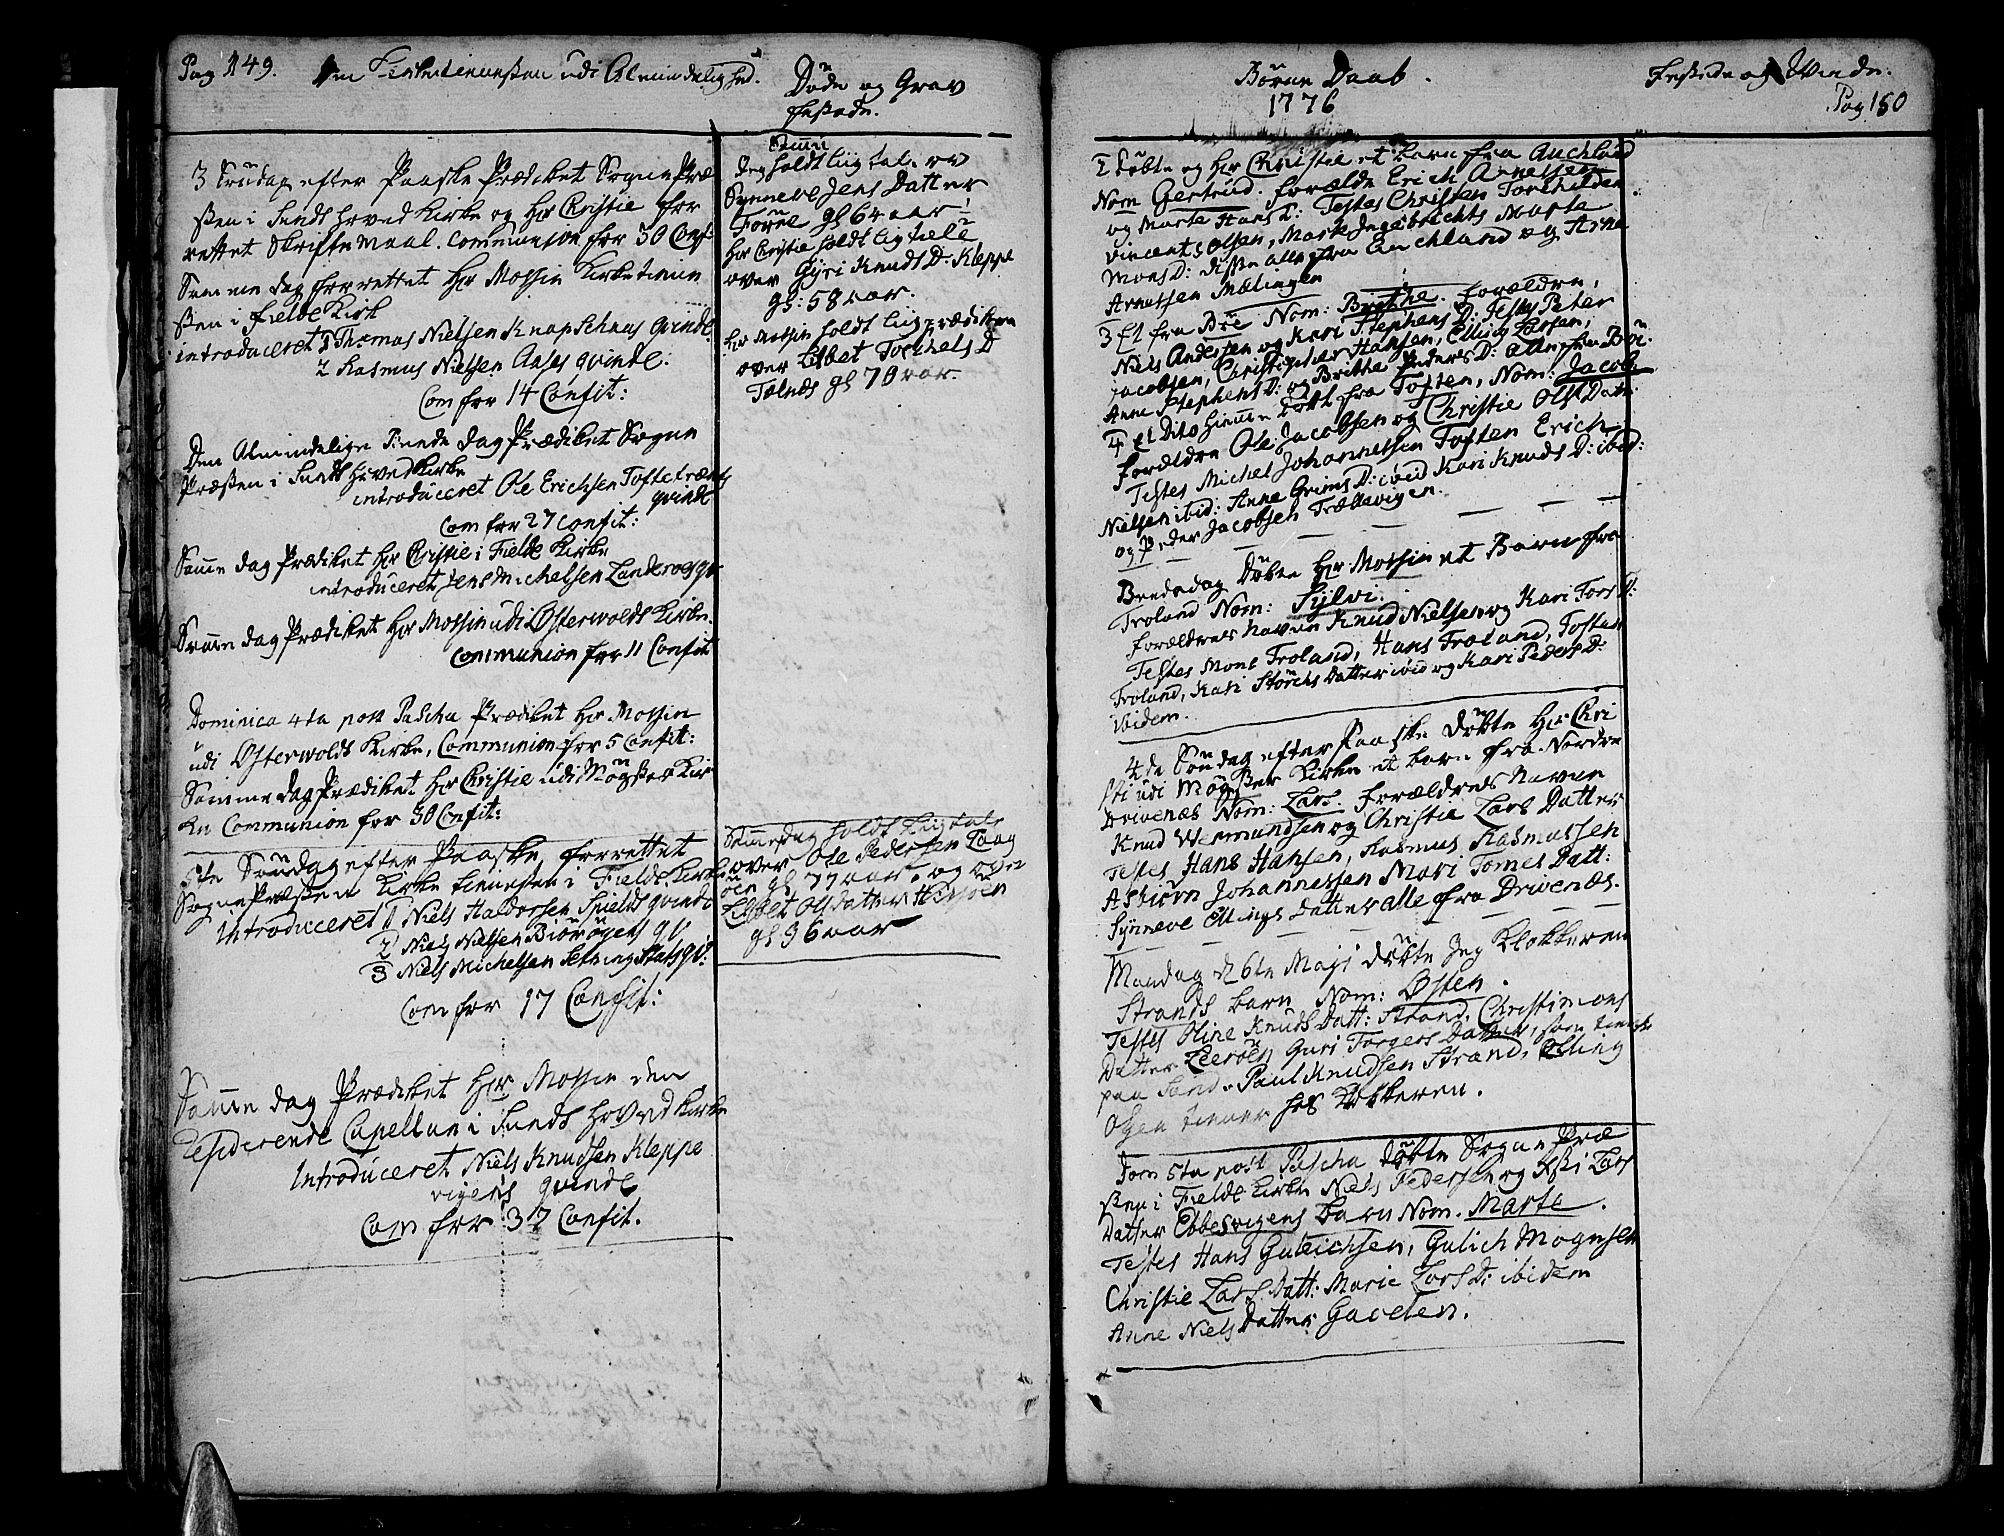 Pag 149. Om Kirketienesten udi Almindelighed.
Døde og Grav
festede.
3 Søndag efter Paaske Prædiket Sogne Præ
sten i Sunds hoved Kirke og Hr Christie for
rettet Skriftemaal. Communion for 50 Conf:
Samme dag forrettet Hr Mossin Kirketienne
sten i Fielde Kirk
introduceret 1 Thomas Nielsen Knapschaus qvinde
2 Rasmus Nielsen Aases qvinde:
Com for 14 Confit:
Den Almindelige Beede dag Prædiket Sogne
Præsten i Sunds Hoved Kirke
introduceret Ole Erichsen Toftetræets
qvinde
Com for 27 Confit:
Samme dag Prædiket Hr Christie i Fielde Kirke
introduceret Jens Michelsen Landeroes qv:
Samme dag Prædiket Hr Mossin udi Østerwolds Kirke.
Communion for 11 Confit
Dominica 4ta post Pascha Prædiket Hr Mossin
udi Østerwolds Kirke, Communion for 5 Confit:
Samme dag Prædiket Hr Christie udi Møgster Kir
ken Communion for 50 Confit:
5te Søndag efter Paaske, forrettet
Sogne Præsten Kirke tienesten i Fielde Kirke
Introduceret 1 Niels Haldorsen Spields qvinde
2 Niels Nielsen Biørøgens qv
3 Niels Michelsen Setning Stats qv:
Com for 17 Confit:
Samme dag Prædiket Hr Mossin den
Residerende Capellan i Sunds Hoved Kirke
Introduceret Niels Knudsen Kleppe
vigens qvinde
Com for 37 Confit.
Jeg holdt Liigtale ov
Synneve Jens Datter
Tørre gl 64 aar
Hr Christie holdt Ligtale
over Gyri Knuds D: Kleppe
gl: 58 aar.
Hr Mossin holdt Liigprædiken
over Lisbet Torchels D
Tofnæs gl 70 aar.
Samme dag holdt Liigtale
over Ole Pedersen Laag
øen gl 77 aar. og over
Lisbet Olsdatter
gl 36 aar
Børne Daab.
1776
Festede og Viede.
Pag 150
2 Døbte og Hr Christie et barn fra Auchland
Nom Gertrud. forældre Erich Arnessen
og Marte Hans D: Testes Christen Torchildsen
Vincents Olsen, Marte Ingebrichts Marte
Mons D: disse alle fra Auchland og Arne
Arnessen Mælingen
3 Et fra Bre Nom: Brythe. Forældre,
Niels Andersen og Kari Stephens D: Testes Peter
Jacobsen, Christopher Hansen, Elling Larsen,
Anne Stephens D: og Britthe Peders D: alle fra Bre.
4 Et Dito hiemme døbt fra Toften, Nom: Jacob
Forældre Ole Jacobsen og Christie Ols Datt:
Testes Michel Johannessen Toften Erich
Nielsen ibid: Anne Grims D: ibid Kari Knuds D: ibid:
og Peder Jacobsen Trællevigen.
Beededag Døbte Hr Mossin et Barn fra
Troland Nom: Sylvi.
forældrenes Navne Knud Nielsen og Kari Tors D:
Testes Mons Troland, Hans Troland, Tosten
Troland, Kari Størchs Datter ibid og Kari Peders D:
ibidem.
4de Søndag efter Paaske Døbte Hr Chri
sti udi Møgster Kirke et barn fra Nordre
Drivenæs Nom: Lars. Forældrenes Navne
Knud Vermundsen og Christie Lars Datter
Testes Hans Hansen, Rasmus Rasmussen
Asbiørn Johannessen Mari Tomes Datt:
Synneve Ellings Datter alle fra Drivenæs.
Mandag d 6te Maji døbte Jeg Klokkeren
Strands barn Nom: Østen.
Testes Oline Knuds Datt: Strand, Christi Mons
Datter Leerøen Guri Torgers Datter, som tiener
paa Sund. Paul Knudsen Strand, Elling
Olsen tiener hos Klokkeren.
Dom 5ta post Pascha døbte Sogne Præ
sten i Fielde Kirke Niels Pedersen og Lars
Datter Ebbesvigens barn Nom. Marte.
Testes Hans Gulichsen, Gulich Mognsen
Christie Lars Datt: Marie Lars D: ibidem
Anne Niels Datter Gavelen.